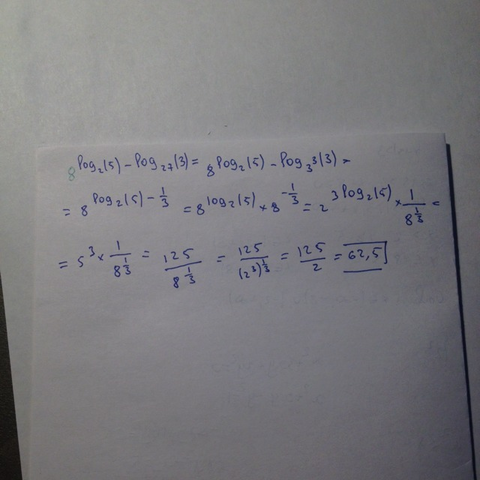 8^log₂(5) - log₂₇(3) = 8^log₂(5) - log₃³(3) =
= 8^log₂(5) - 1/3 = 8^log₂(5) × 8^-1/3 = 2^3log₂(5) × 1/8^1/3 =
= 5³ × 1/8^1/3 = 125/8^1/3 = 125/(2³)^1/3 = 125/2 = 62,5